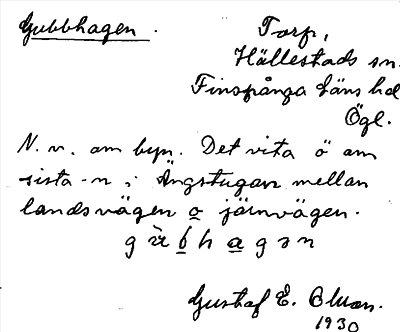 Gubbhagen.
Torp,
Hällestads sn.
Finspånga läns hd
Ögl.
N. v. om byn. Det vita ö om
sista -n i Ängstugan mellan
landsvägen o järnvägen.
g ù b h a g ə n
Gustaf E.
1930